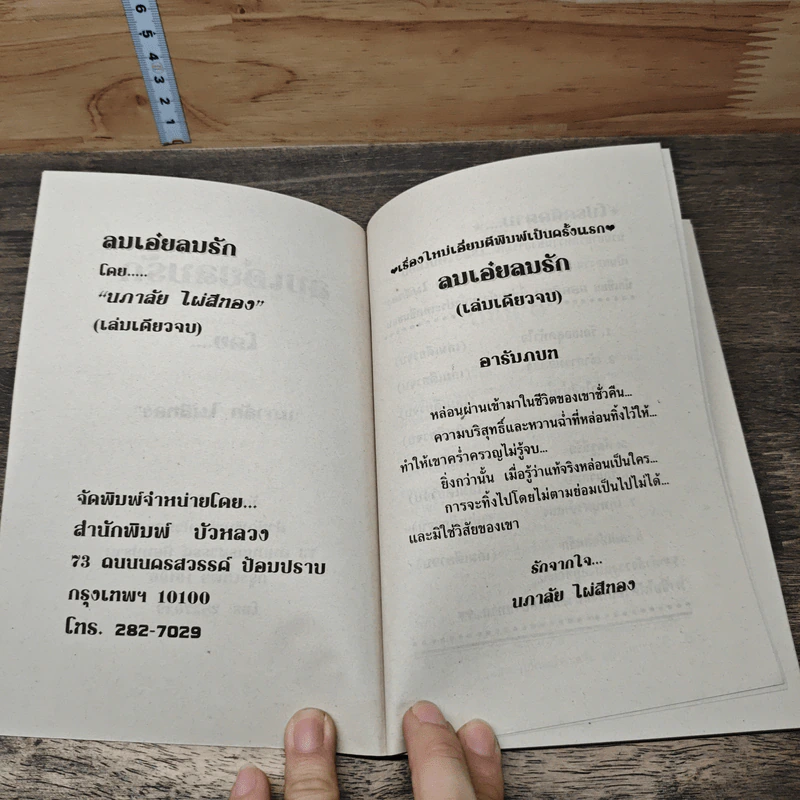 6
5
4
3
2
1
ลมเอ๋ยลมรัก
โดย.....
“นภาลัย ไผ่สีทอง”
(เล่มเดียวจบ)
จัดพิมพ์จำหน่ายโดย...
สำนักพิมพ์ บัวหลวง
73 ถนนนครสวรรค์ ป้อมปราบ
กรุงเทพฯ 10100
โทร. 282-7029
♥เรื่องใหม่เอี่ยมตีพิมพ์เป็นครั้งแรก♥
ลมเอ๋ยลมรัก
(เล่มเดียวจบ)
อารัมภบท
หล่อนผ่านเข้ามาในชีวิตของเขาชั่วคืน...
ความบริสุทธิ์และหวานฉ่ำที่หล่อนทิ้งไว้ให้...
ทำให้เขาคร่ำครวญไม่รู้จบ...
ยิ่งกว่านั้น เมื่อรู้ว่าแท้จริงหล่อนเป็นใคร...
การจะทิ้งไปโดยไม่ตามย่อมเป็นไปไม่ได้...
และมิใช่วิสัยของเขา
รักจากใจ...
นภาลัย ไผ่สีทอง